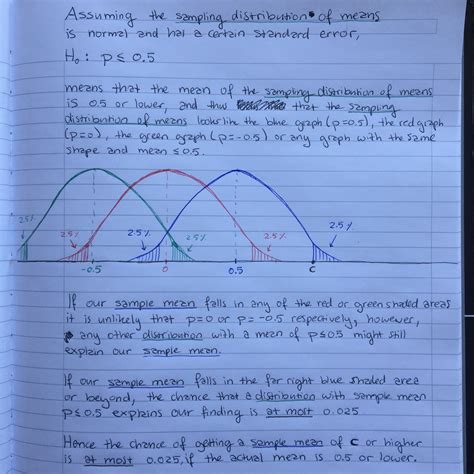 Assuming the sampling distribution of means
is normal and has a certain standard error,
H₀ : p ≤ 0.5
means that the mean of the sampling distribution of means
is 0.5 or lower, and thus that the sampling
distribution of means looks like the blue graph (p=0.5), the red graph
(p=0), the green graph (p=-0.5) or any graph with the same
shape and mean ≤ 0.5.
2.5% 2.5% 2.5% 2.5% 2.5% 2.5%
-0.5 0 0.5 C
If our sample mean falls in any of the red or green shaded areas
it is unlikely that p=0 or p= -0.5 respectively, however,
any other distribution with a mean of p≤0.5 might still
explain our sample mean.
If our sample mean falls in the far right blue shaded area
or beyond, the chance that a distribution with sample mean
p≤0.5 explains our finding is at most 0.025
Hence the chance of getting a sample mean of C or higher
is at most 0.025, if the actual mean is 0.5 or lower.